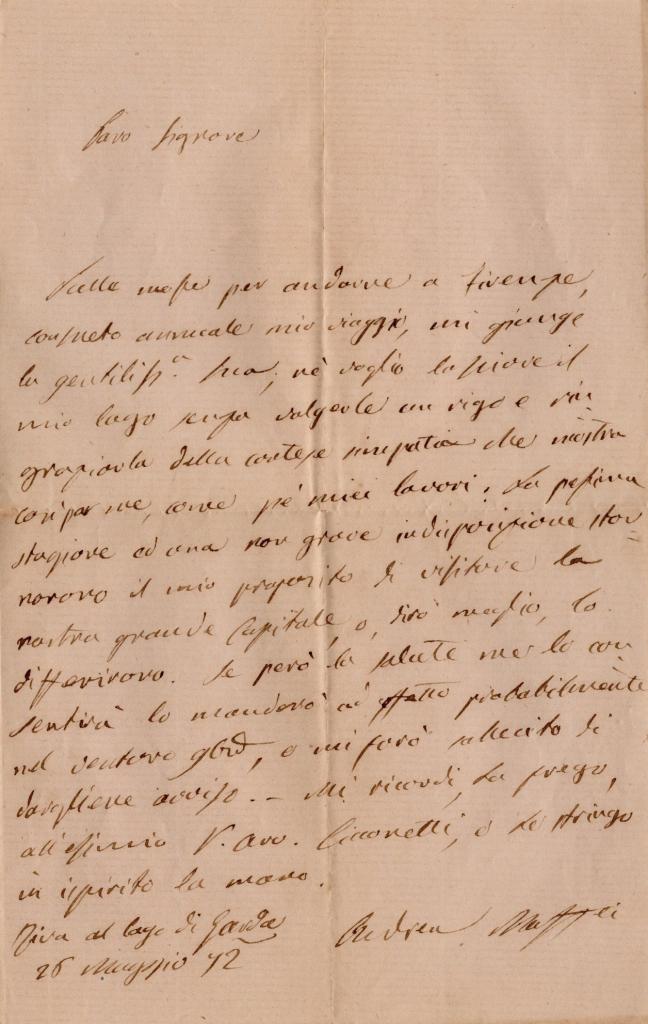 Caro Signore
Sulle mosse per andarne a Firenze,
consueto annuale mio viaggio, mi giunge
la gentiliss.ª Sua; nè voglio lasciare il
mio lago senza volgerle un rigo e rin
graziarla della cortese simpatia che mostra
così per me, come pe' miei lavori. La pessima
stagione ed una non grave indisposizione stor=
narono il mio proposito di visitare la
nostra grande Capitale, o, dirò meglio, lo
differirono. Se però la salute me lo con
sentirà lo manderò ad effetto probabilmente
nel venturo 9bre, e mi farò sollecito di
dargliene avviso. – Mi ricordi, La prego,
all'esimio Avv. , e Le stringo
in ispirito la mano.
Riva al lago di Garda
26 Maggio 72
Andrea Maffei